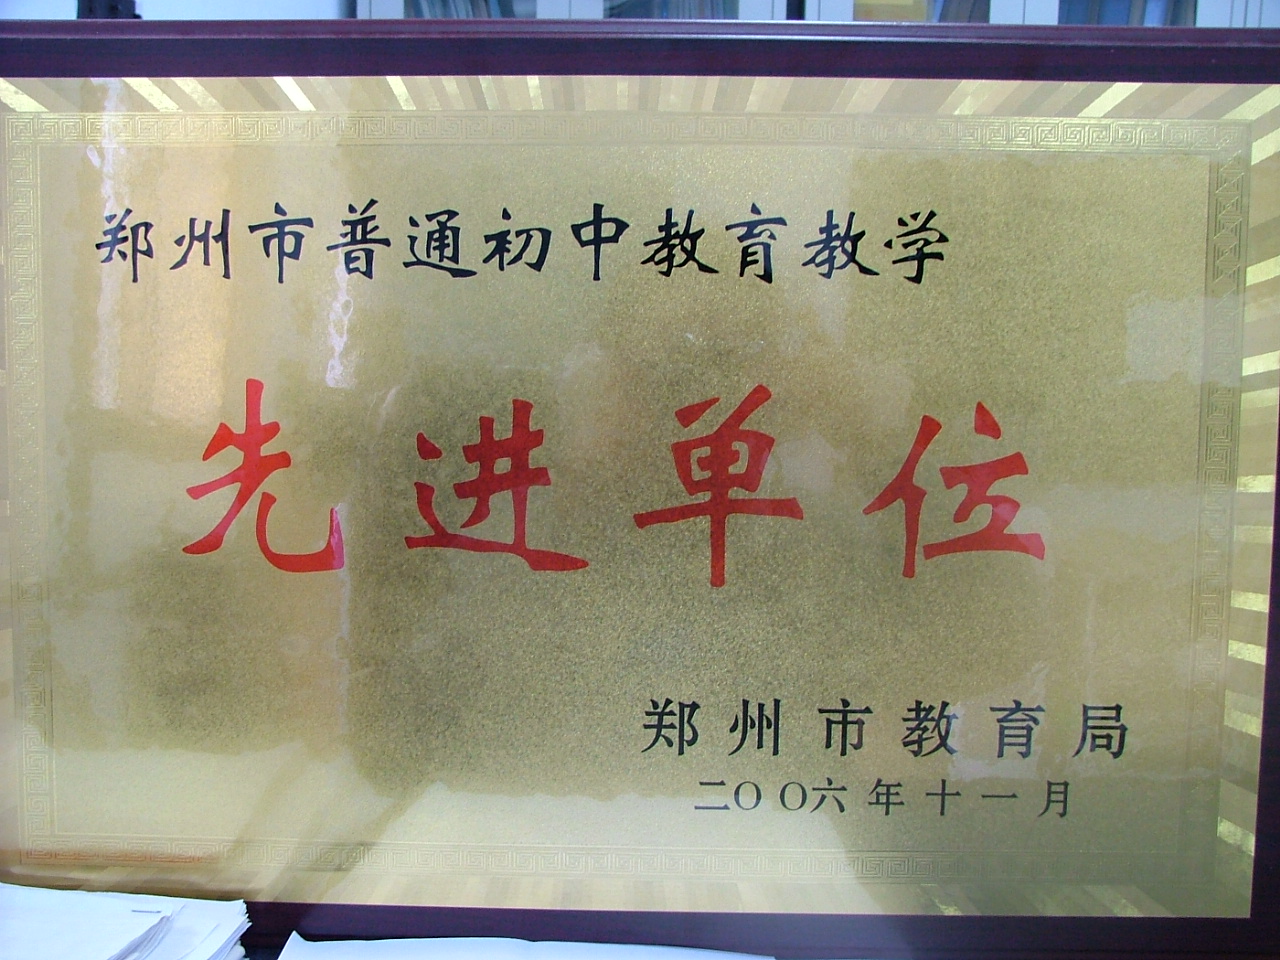 郑州市普通初中教育教学
先进单位
郑州市教育局
二〇〇六年十一月